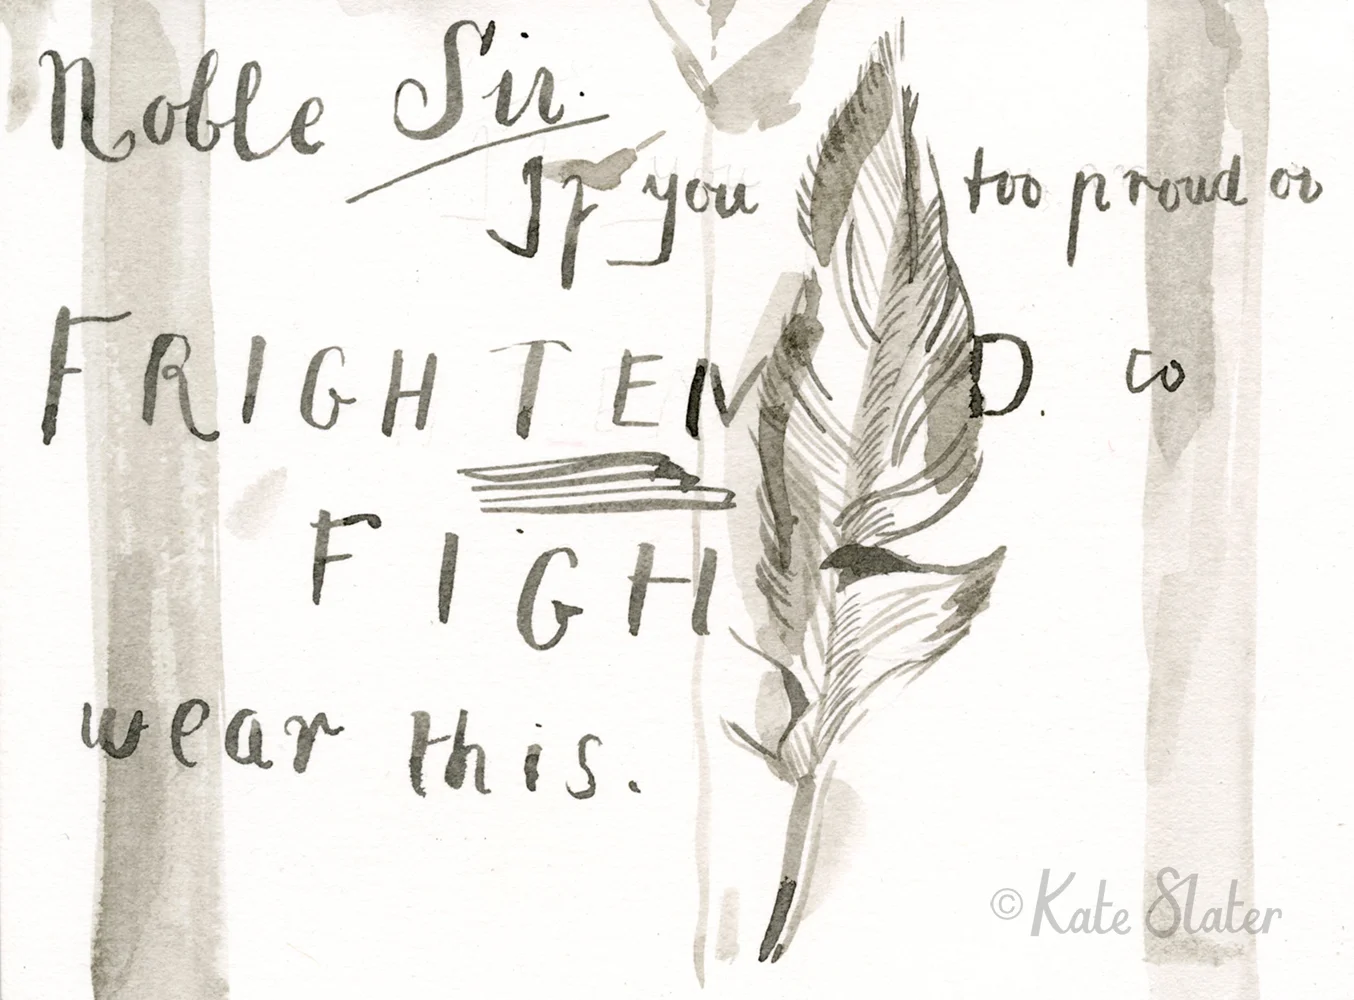 Noble Sir.
If you too proud or
FRIGHTENED. to
FIGH
wear this.
© Kate Slater